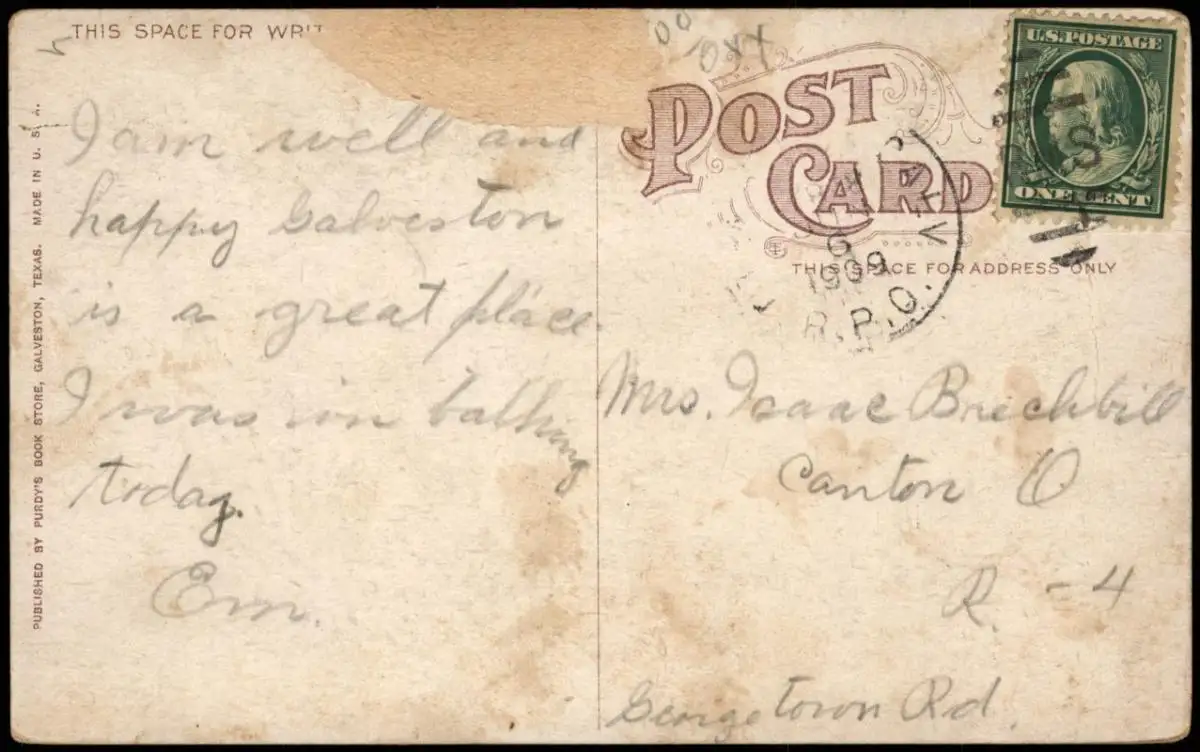 THIS SPACE FOR WRIT
I am well and
happy Galveston
is a great place.
I was in bathing
today.
Em.
PUBLISHED BY PURDY'S BOOK STORE, GALVESTON, TEXAS. MADE IN U. S. A.
POST
CARD
THIS SPACE FOR ADDRESS ONLY
U.S. POSTAGE
ONE CENT
GALV
6
1909
R.P.O.
Mrs. Isaac Brechbill
Canton O
R. - 4
Georgetown Rd.